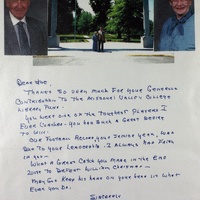 Dear
Thanks so much for your generous
contribution to the Missouri Valley College
Library Fund.
You were one of the toughest players I
ever coached - you had such a great desire
to win.
Our football record your senior year, was
due to your leadership. I always had faith
in you -
What a great catch you made in the end
zone to defeat William
May God keep his hand on your back in what
ever you do.
Sincerely